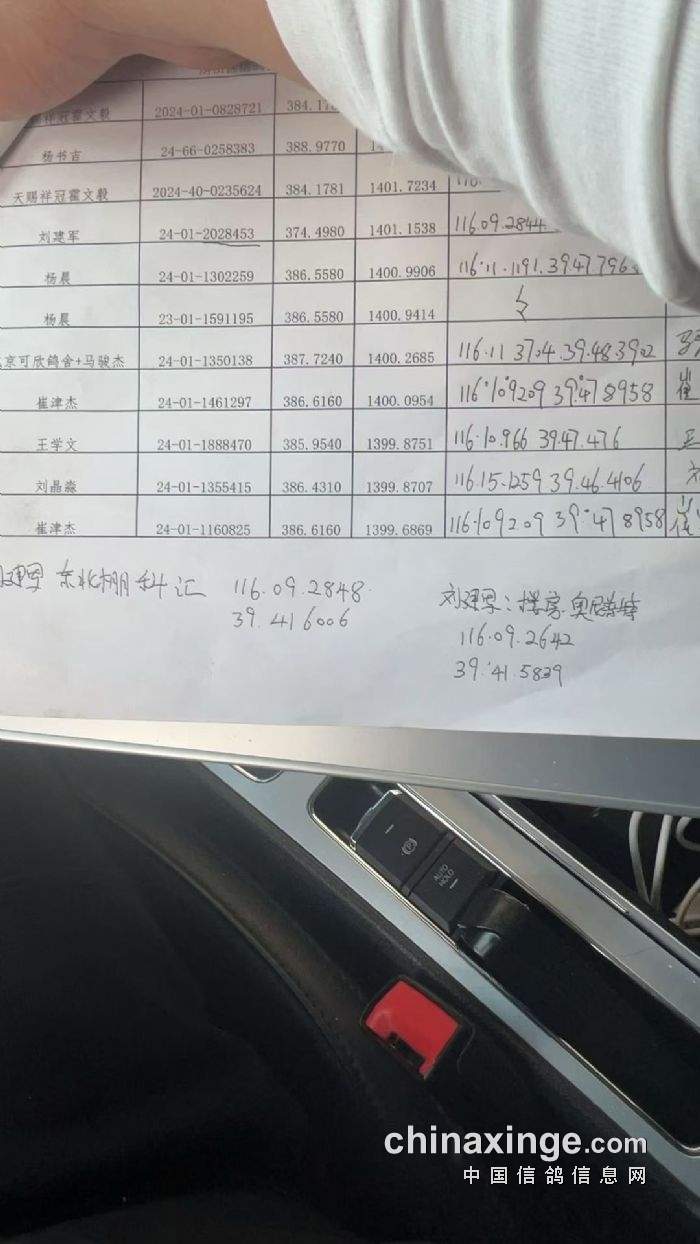 2024-01-0828721 384.17
杨书吉 24-66-0258383 388.9770
天赐祥冠霍文毅 2024-40-0235624 384.1781 1401.7234
刘建军 24-01-2028453 374.4980 1401.1538 116.09.2844
杨晨 24-01-1302259 386.5580 1400.9906 116.11.1191.39.47.796
杨晨 23-01-1591195 386.5580 1400.9414
京可欣鸽舍+马骏杰 24-01-1350138 387.7240 1400.2685 116.11 3704.39.48.3902
崔津杰 24-01-1461297 386.6160 1400.0954 116°109209 39°478958 崔
王学文 24-01-1888470 385.9540 1399.8751 116.10.966 39.47.476
刘晶淼 24-01-1355415 386.4310 1399.8707 116.15.1259.39.46.4106
崔津杰 24-01-1160825 386.6160 1399.6869 116.109209 39°478958 崔
东北棚科汇 116.09.2848
39.416006
刘建军:楼房
116.09.2642
39.41.5829
AUTO HOLD
chinaxinge.com
中国信鸽信息网